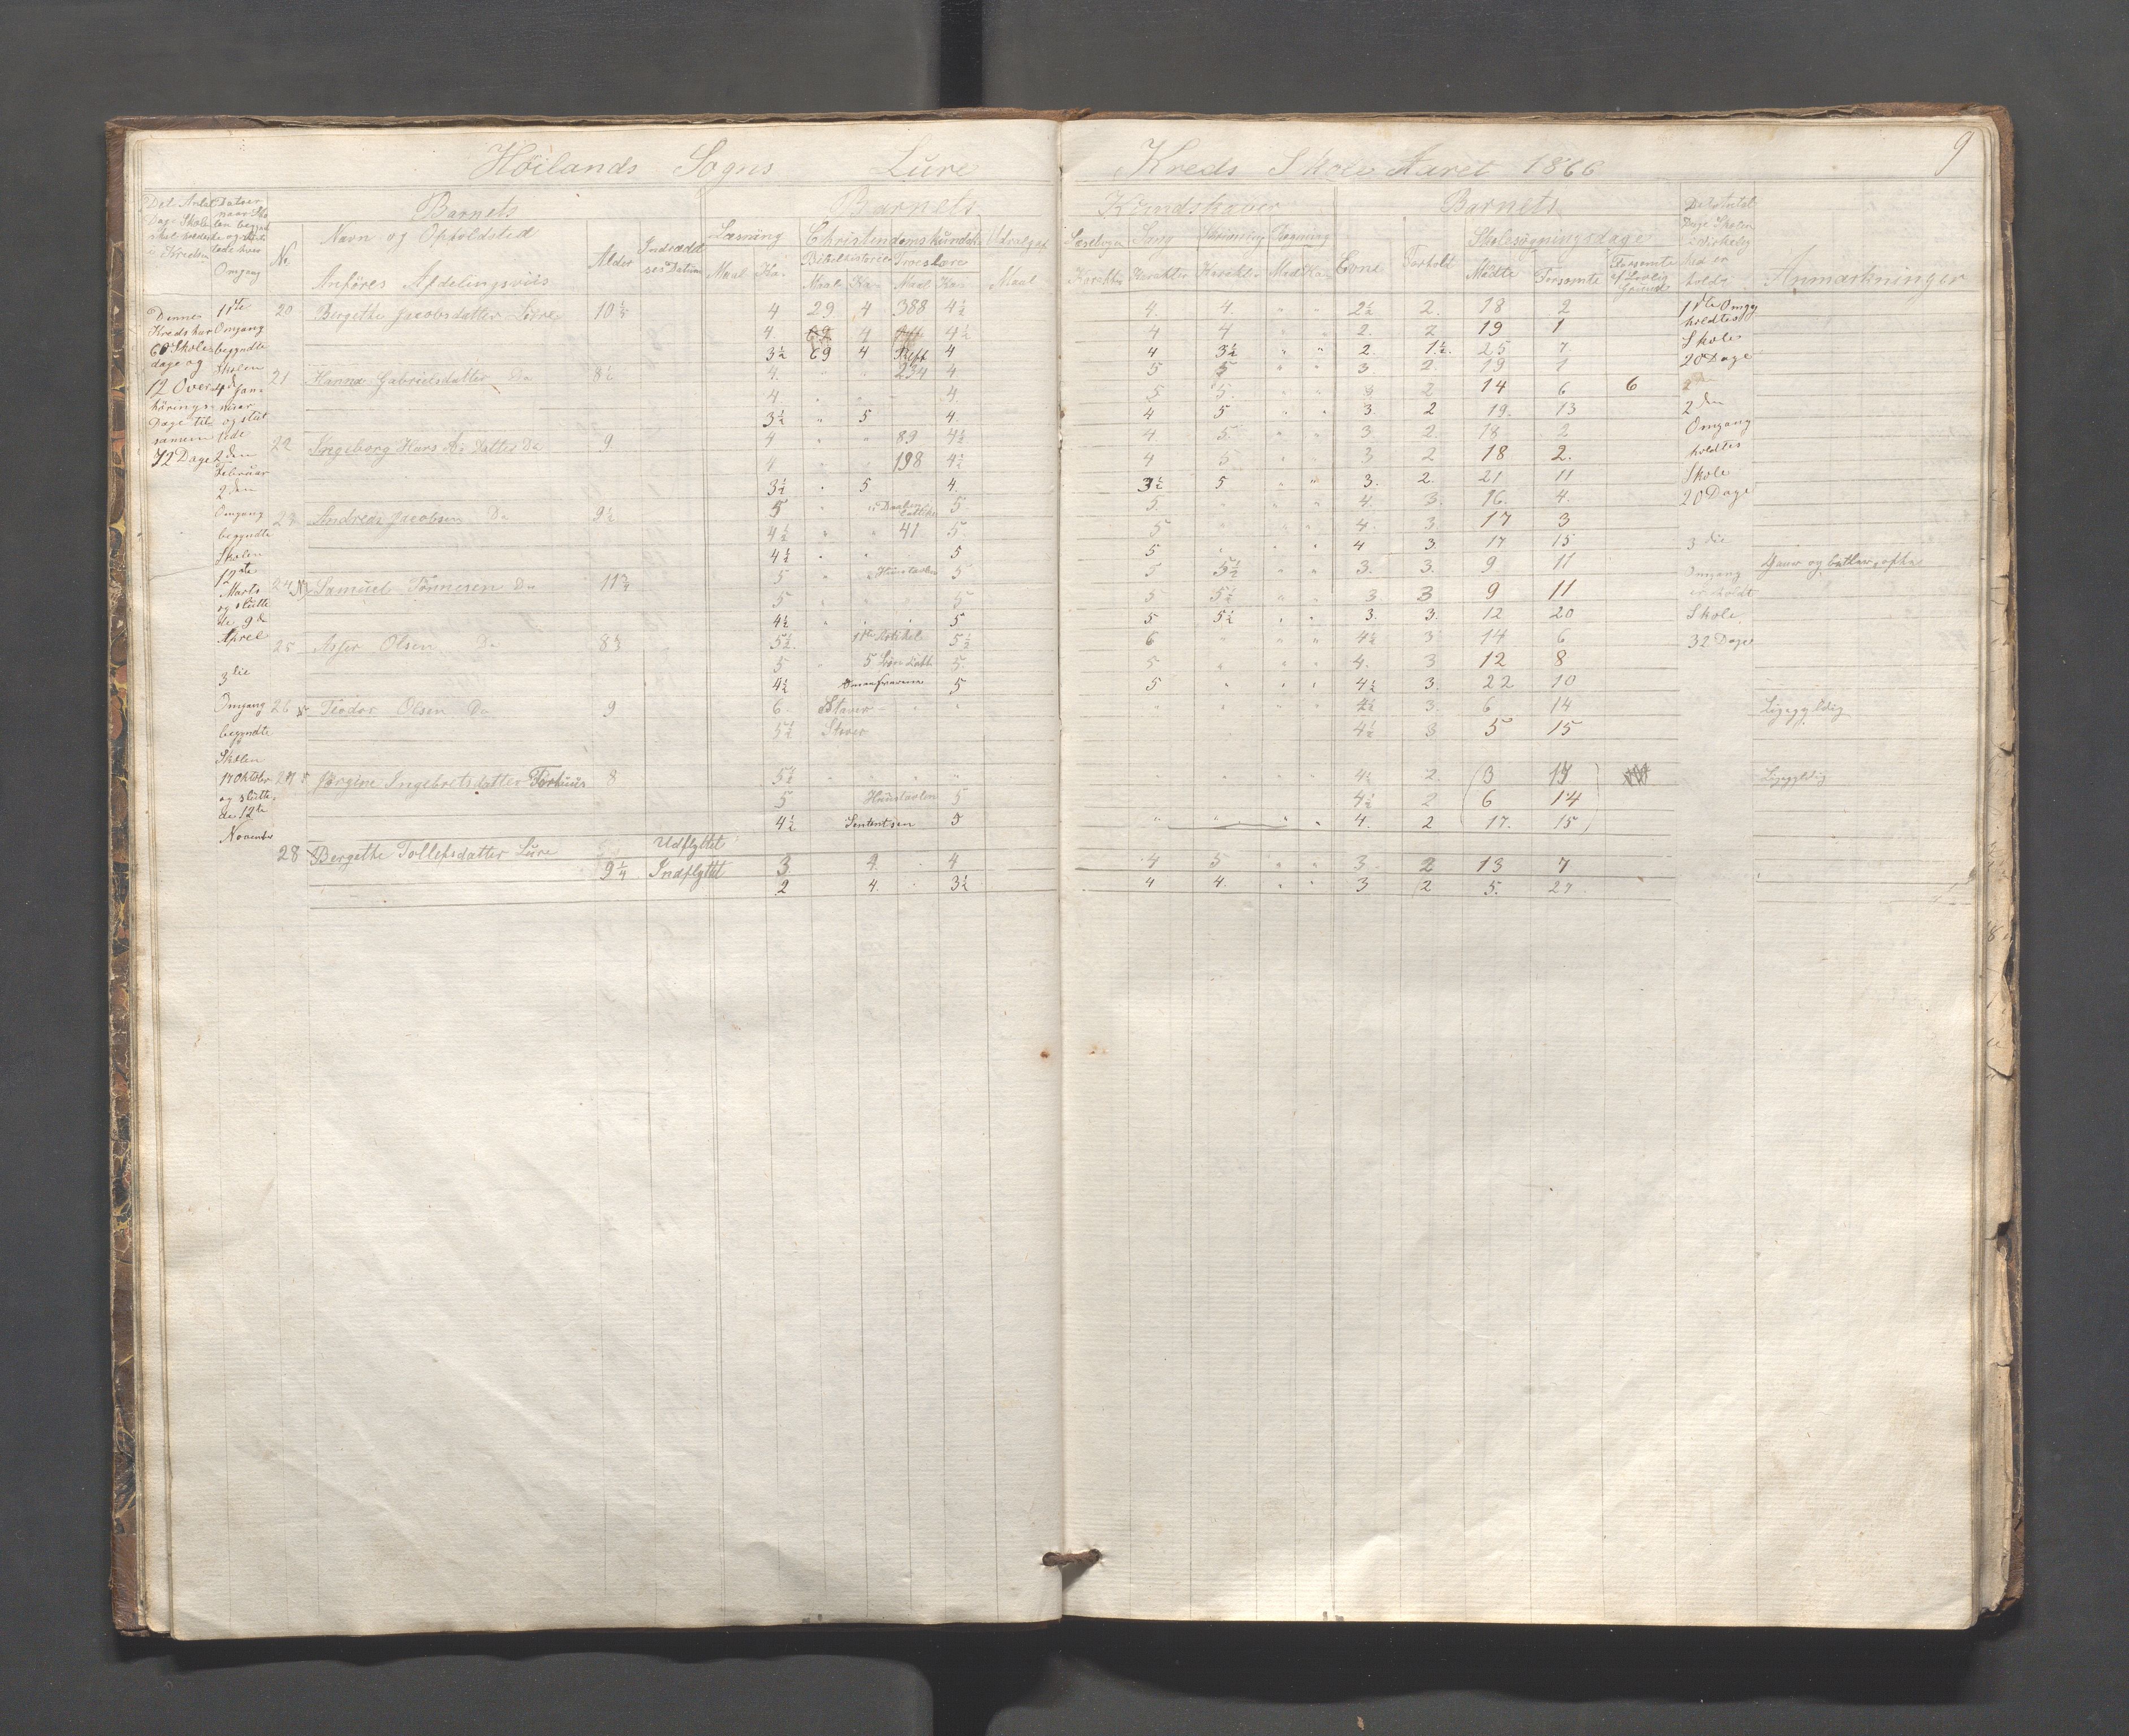 Höilands Sogns Lure Kreds Skole Aaret 1866
9
Det Antal Dage Skole skal holdes i Kredsen
Datoer naar Skolen begyndte og sluttede hver Omgang
No
Barnets
Navn og Opholdsted
Anføres Afdelingsviis
Alder
Indtrædelses Datum
Barnets Kundskaber
Læsning
Maal Ka-
Christendomskundsk
Bibelhistorie Troeslære
Maal Ka- Maal Ka-
Udvalgte
Maal
Læsebogen
Karakter
Sang
Karakter
Skrivning
Karakter
Regning
Maal Ka-
Barnets
Evne
Forhold
Skolesøgningsdage
Mödte
Forsømte
Forsømte af Lovlig Grund
Det Antal Dage Skolen i Virkelighed er holdt
Anmærkninger
Denne
Kreds har
60 Skole
dage og
12 Over
hörings
Dage til
samen
72 Dage
1ste
Omgang
begyndte
Skolen
4de Jan-
uar
og slut
tede
2den
Februar
2den
Omgang
begyndte
Skolen
12te
Marts
og slutte
de 9de
Aprel
3die
Omgang
begyndte
Skolen
17 Oktober
og slutte
de 12te
November
20 Bergethe Jacobsdatter Lure 10 1/4 4 29 4 388 4 1/2 4. 4. " " 2 1/2 2. 18 2
4. 69 4 4 1/2 4 4 " " 2. 2 19 1
3 1/2 69 4 Rest 4 4 3 1/2 " " 2. 1 1/2. 25 7
21 Hanna Gabrielsdatter Do 8 1/2 4. " " 234 4 5 5 " " 3. 2. 19 1
4 " " " 4 5 5. " " 3 2 14 6 6
3 1/2 " 5 4. 4 5 " " 3. 2 19. 13
22 Ingeborg Hans A. Datter Do 9 4 " " 89 4 1/2 4 5. " " 3. 2. 18 2
4 " " 198 4 1/2 4 5 " " 3 2 18 2.
3 1/2 " 5 4. 3 1/2 5 " " 3. 2. 21 11
23 Andreas Jacobsen Do 9 1/2 5 " " 5. 5. " " 4. 3. 16. 4.
4 1/2 " " 41 5 5 " " 4. 3. 17 3
4 1/2 " " 5 5 " " 4 3 17 15
24 Samuel Tönnesen Do 11 3/4 5 " " Huustavlen 5 5 5 1/2 " " 3. 3. 9 11 Doven og
5 " " " 5 5 5 1/2 " " 3 3 9 11
4 1/2 " " " 5 5 5 1/2 " " 3. 3. 12 20
25 Asser Olsen Do 8 3/4 5 1/2. 1ste Artikel 5 1/2 6 " " " 4 1/2 3 14 6
5 " 5 5. 5 " " " 4. 3 12 8
4 1/2 5 5 " " " 4 1/2 3. 22 10
26 Teodor Olsen Do 9 6 Staver " " " " " " " 4 1/2 3. 6 14 Ligegyldig
5 1/2 Staver 4 1/2 3 5 15
27 Jörgine Ingebretsdatter Forhuus 8 5 1/2 " " " " " " " " 4 1/2 2. 3 17 Ligegyldig
5 Huustavlen 5 4 1/2 2 6 14
4 1/2 Sententsen 5 " " " " 4. 2 17. 15
28 Bergethe Tollefsdatter Lure Udflyttet
9 1/4 Indflyttet 3 4. " 4 4 5 " " 3. 2 13 7
2 4. " 3 1/2 4 4. " " 3 2 5. 27
1ste Omgg
holdtes
Skole
20 Dage
2den
Omgang
holdtes
Skole
20 Dage
3die
Omgang
er holdt
Skole
32 Dage